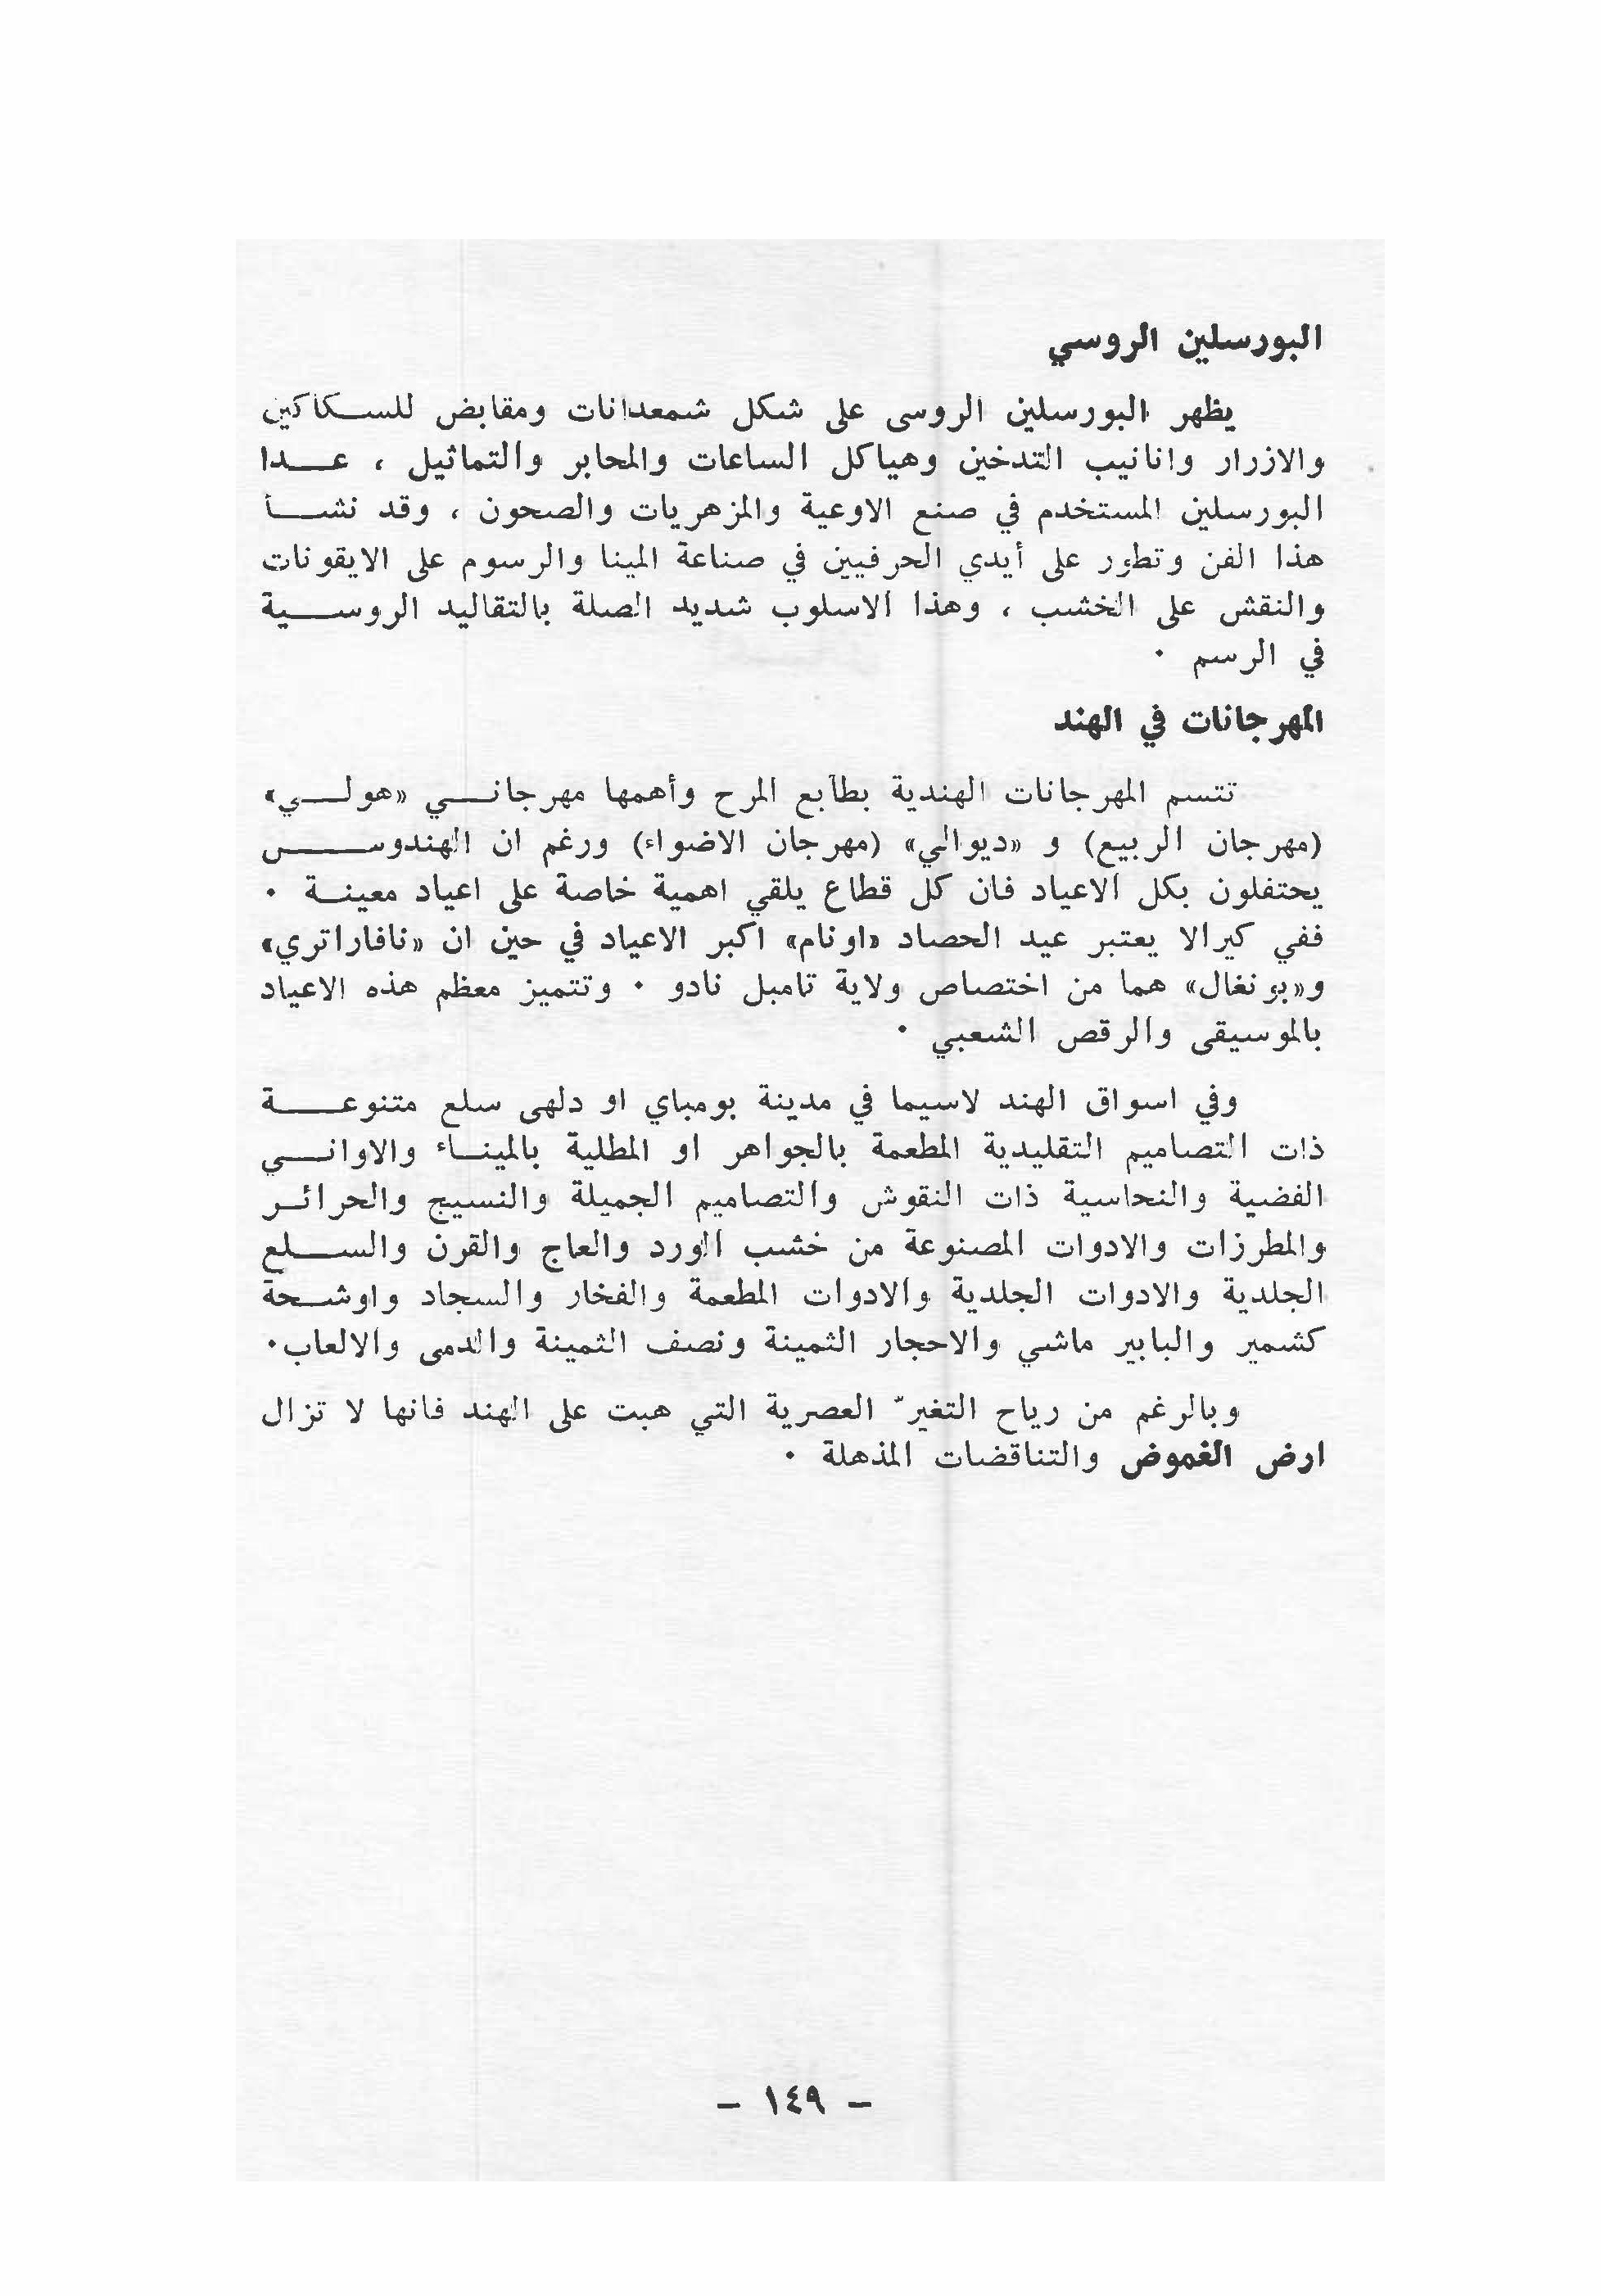 البورسلين الروسي
يظهر البورسلين الروسى على شكل شمعدانات ومقابض للسكاكين
والازرار وانانيب التدخين وهياكل الساعات والمحابر والتماثيل ، عدا
البورسلين المستخدم في صنع الاوعية والمزهريات والصحون ، وقد نشأ
هذا الفن وتطور على أيدي الحرفيين في صناعة المينا والرسوم على الايقونات
والنقش على الخشب ، وهذا الاسلوب شديد الصلة بالتقاليد الروسية
في الرسم .
المهرجانات في الهند
تتسم المهرجانات الهندية بطابع المرح وأهمها مهرجاني «هولي»
(مهرجان الربيع) و «ديوالي» (مهرجان الاضواء) ورغم ان الهندوس
يحتفلون بكل الاعياد فان كل قطاع يلقي اهمية خاصة على اعياد معينة .
ففي كيرالا يعتبر عيد الحصاد «اونام» اكبر الاعياد في حين ان «نافاراتري»
و«بونغال» هما من اختصاص ولاية تامبل نادو . وتتميز معظم هذه الاعياد
بالموسيقى والرقص الشعبي .
وفي اسواق الهند لاسيما في مدينة بومباي او دلهى سلع متنوعة
ذات التصاميم التقليدية المطعمة بالجواهر او المطلية بالميناء والاواني
الفضية والنحاسية ذات النقوش والتصاميم الجميلة والنسيج والحرائر
والمطرزات والادوات المصنوعة من خشب الورد والعاج والقرن والسلع
الجلدية والادوات الجلدية والادوات المطعمة والفخار والسجاد واوشحة
كشمير والبابير ماشي والاحجار الثمينة ونصف الثمينة والدمى والالعاب.
وبالرغم من رياح التغيرّ العصرية التي هبت على الهند فانها لا تزال
ارض الغموض والتناقضات المذهلة .
- ١٤٩ -